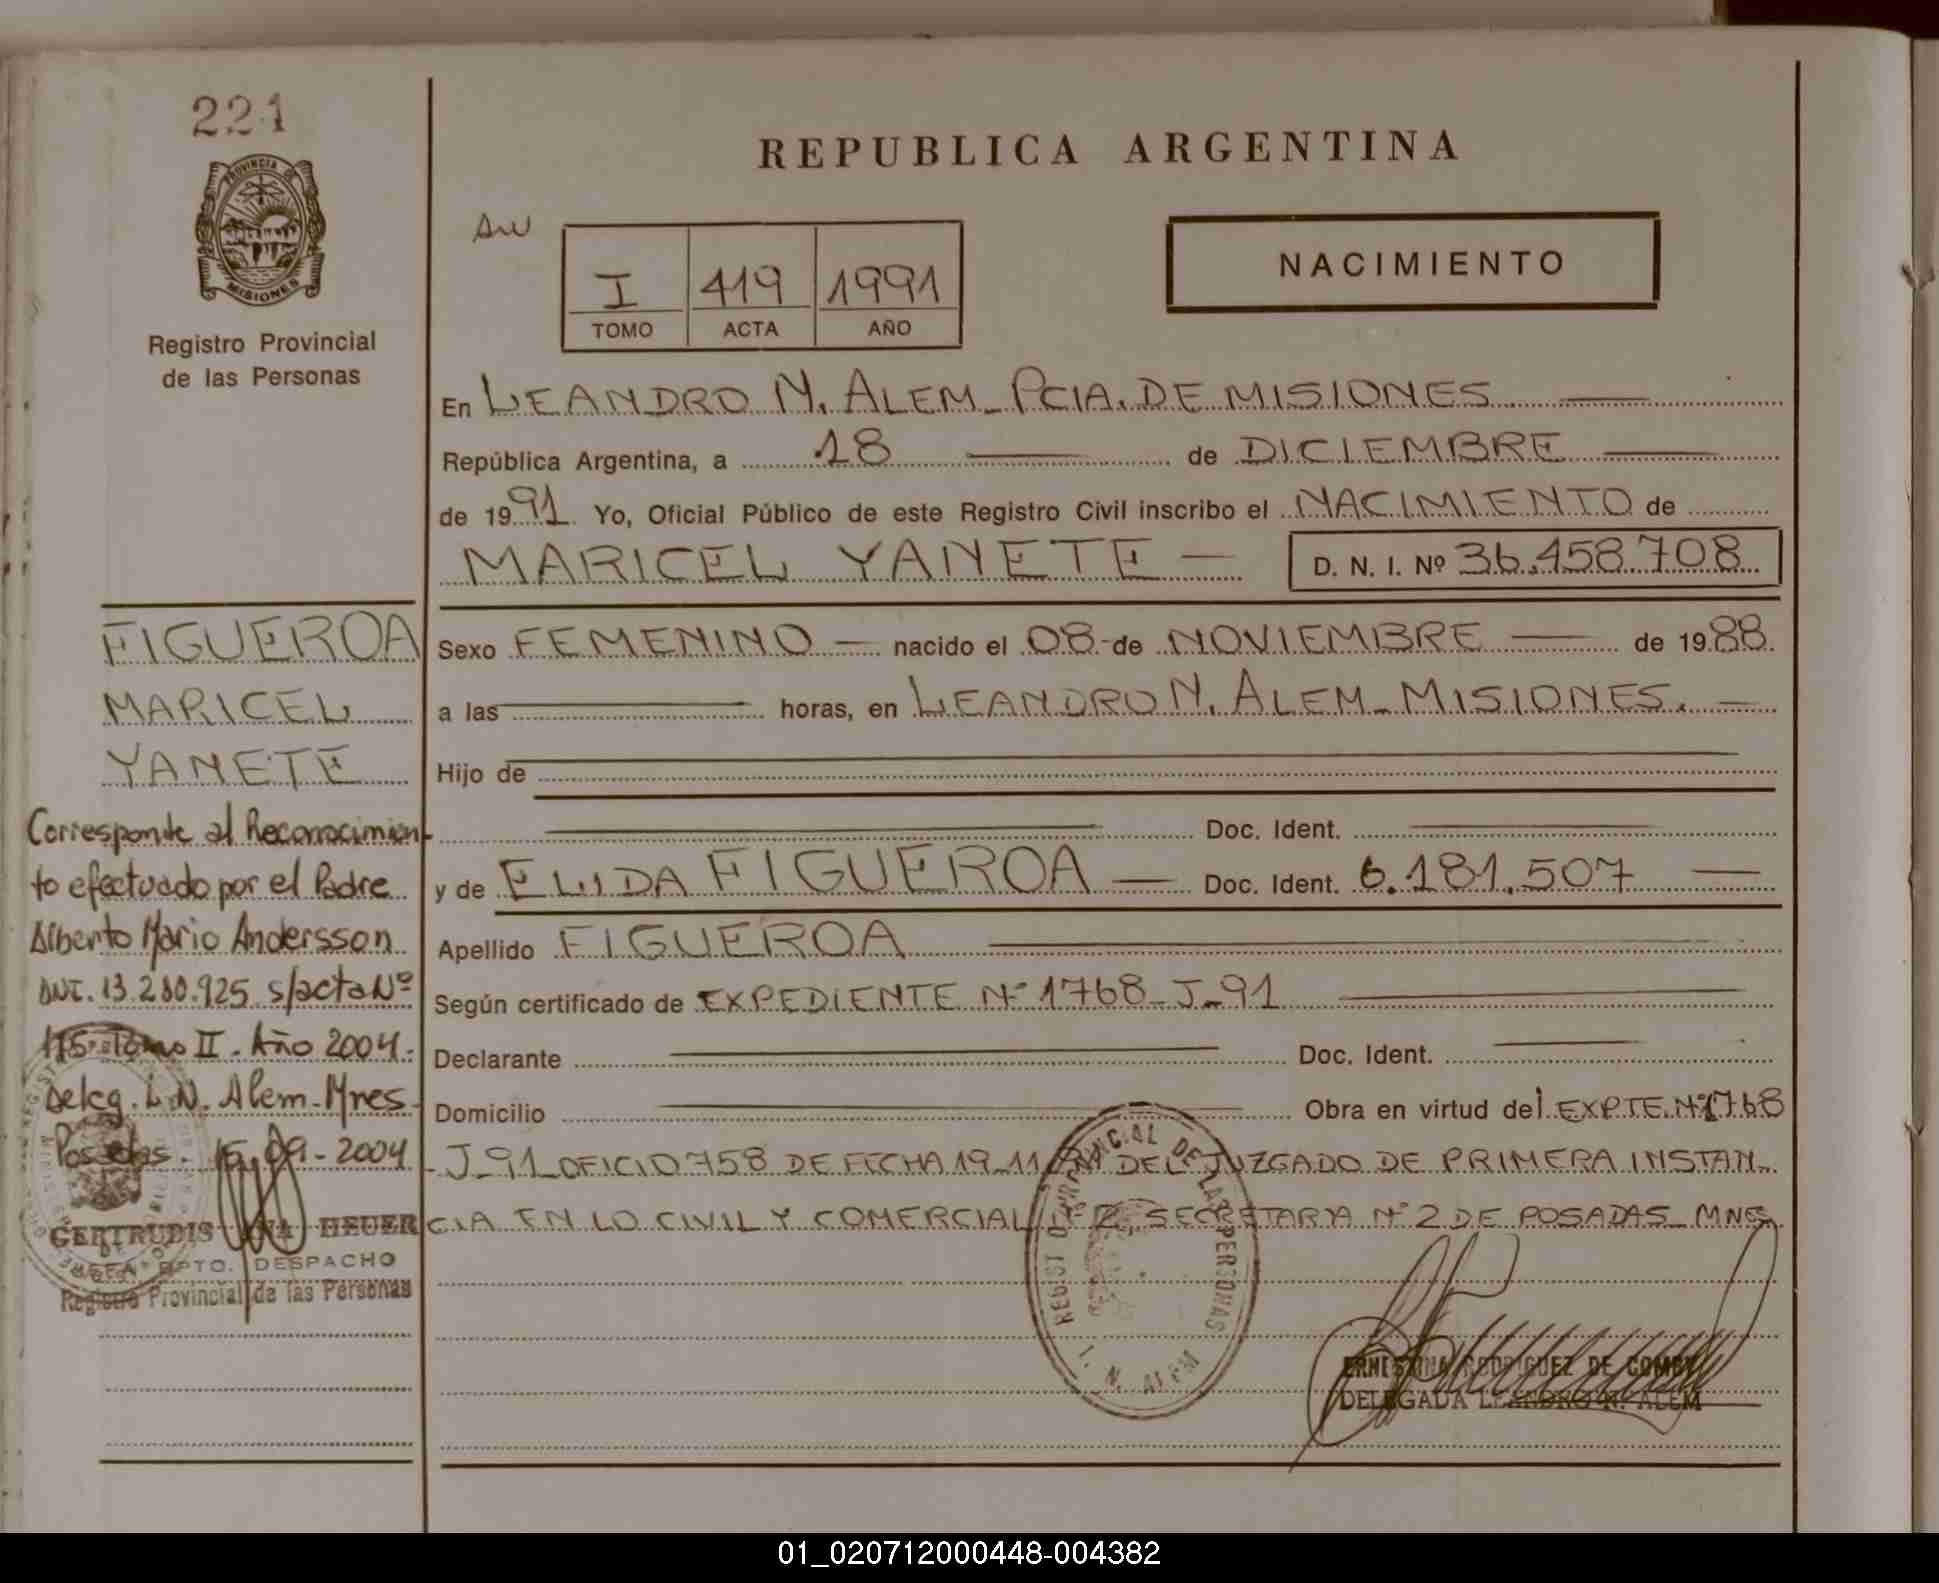 221
PROVINCIA DE
MISIONES
Registro Provincial
de las Personas
REPUBLICA ARGENTINA
I 419 1991
TOMO ACTA AÑO
NACIMIENTO
En LEANDRO N. ALEM_ PCIA. DE MISIONES
República Argentina, a 18 de DICIEMBRE
de 1991 Yo, Oficial Público de este Registro Civil inscribo el NACIMIENTO de
MARICEL YANETE D. N. I. Nº 36.458.708
Sexo FEMENINO nacido el 08 de NOVIEMBRE de 1988
a las horas, en LEANDRO N. ALEM_ MISIONES.
Hijo de
Doc. Ident.
y de ELIDA FIGUEROA Doc. Ident. 6.181.507
Apellido FIGUEROA
Según certificado de EXPEDIENTE Nº 1768_J_91
Declarante Doc. Ident.
Domicilio Obra en virtud del EXPTE. Nº 1768
J_91_OFICIO 758 DE FECHA 19_11 DEL JUZGADO DE PRIMERA INSTAN_
CIA EN LO CIVIL Y COMERCIAL Nº 2, SECRETARYA Nº 2 DE POSADAS_MNES.
FIGUEROA
MARICEL
YANETE
Corresponde al Reconocimien-
to efectuado por el Padre
Alberto Mario Andersson
DNI. 13.280.925 s/acta Nº
175 Tomo II. Año 2004.
Deleg. L.N. Alem-Mnes
Posadas. 15-09-2004
GERTRUDIS ANA HEUER
JEFA DPTO. DESPACHO
Registro Provincial de las Personas
REGISTRO PROVINCIAL DE LAS PERSONAS
L. N. ALEM
ERNESTINA RODRIGUEZ DE
DELEGADA LEANDRO N. ALEM
01_020712000448-004382